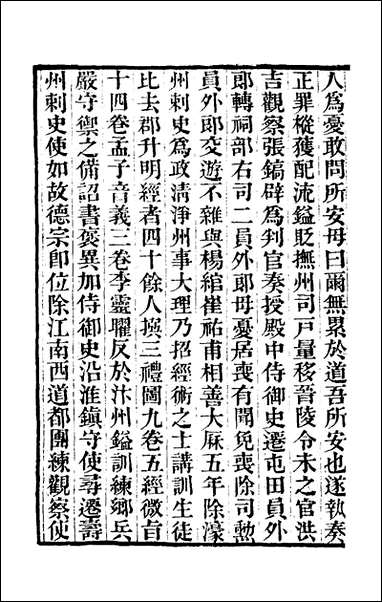 人爲憂敢問所安母曰爾無累於道吾所安也遂執奏
正罪樅獲配流鎰貶撫州司戸量移晉陵令未之官洪
吉觀察張鎬辟爲判官奏授殿中侍御史遷屯田員外
郎轉祠部右司二員外郎母憂居喪有聞免喪除司勳
員外郎交遊不雜與楊綰崔祐甫相善大厯五年除濠
州刺史爲政清淨州事大理乃招經術之士講訓生徒
比去郡升明經者四十餘人撰三禮圖九卷五經微旨
十四卷孟子音義三卷李靈曜反於汴州鎰訓練鄉兵
嚴守禦之備詔書褒異加侍御史沿淮鎮守使尋遷壽
州刺史使如故德宗即位除江南西道都團練觀察使